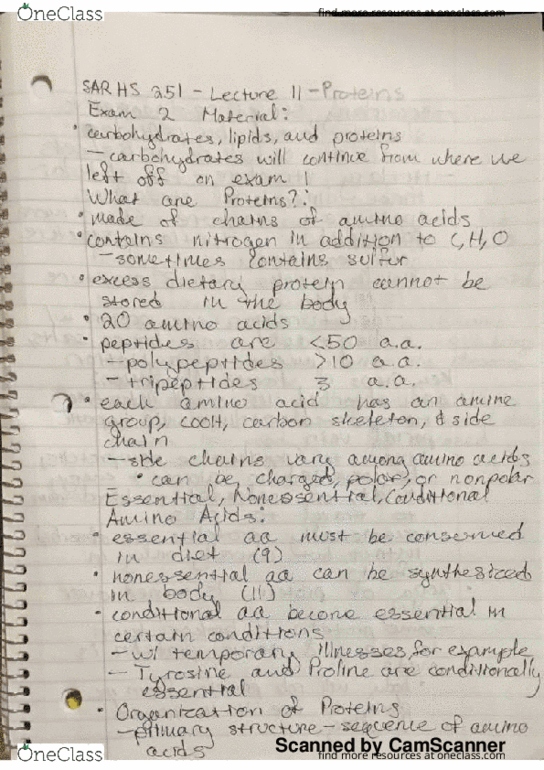 OneClass
find more resources at oneclass.com
SAR HS 251 - Lecture 11 - Proteins
Exam 2 Material:
• carbohydrates, lipids, and proteins
- carbohydrates will continue from where we
left off on exam 1
What are Proteins?:
• made of chains of amino acids
• contains nitrogen in addition to C,H,O
- sometimes contains sulfur
• excess dietary protein cannot be
stored in the body
• 20 amino acids
• peptides are <50 a.a.
- polypeptides >10 a.a.
- tripeptides 3 a.a.
• each amino acid has an amine
group, COOH, carbon skeleton, & side
chain
- side chains vary among amino acids
• can be charged, polar, or nonpolar
Essential, Nonessential, Conditional
Amino Acids:
• essential aa must be consumed
in diet (9)
• nonessential aa can be synthesized
in body (11)
• conditional aa become essential in
certain conditions
- w/ temporary illnesses, for example
- Tyrosine and Proline are conditionally
essential
• Organization of Proteins
- primary structure - sequence of amino
acids
Scanned by CamScanner
OneClass
find more resources at oneclass.com